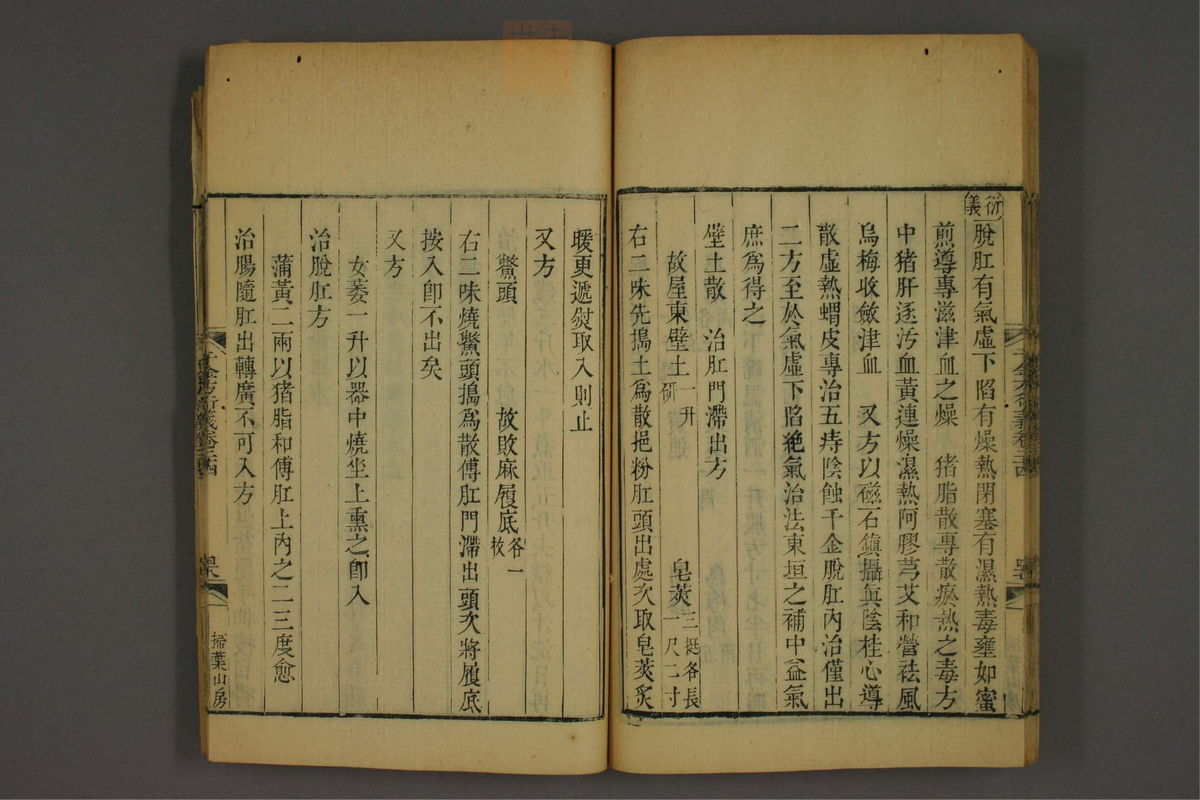 衍義
脫肛有氣虛下陷有燥熱閉塞有濕熱毒壅如蜜
煎導專滋津血之燥　猪脂散專散瘀熱之毒方
中猪肝逐汚血黃連燥濕熱阿膠芎艾和營祛風
烏梅收斂津血　又方以磁石鎮攝眞陰桂心導
散虛熱蝟皮專治五痔陰蝕千金脫肛內治僅出
二方至於氣虛下陷絶氣治法東垣之補中益氣
庶爲得之
壁土散　治肛門滯出方
故屋東壁土一升研　皂莢三挺各長一尺二寸
右二味先搗土爲散挹粉肛頭出處次取皂莢炙
暖更遞熨取入則止
又方
鱉頭　故敗麻履底各一枚
右二味燒鱉頭搗爲散傅肛門滯出頭次將履底
按入卽不出矣
又方
女萎一升以器中燒坐上熏之卽入
治脫肛方
蒲黃二兩以猪脂和傅肛上內之二三度愈
治腸隨肛出轉廣不可入方
千金方衍義卷之十四
掃葉山房